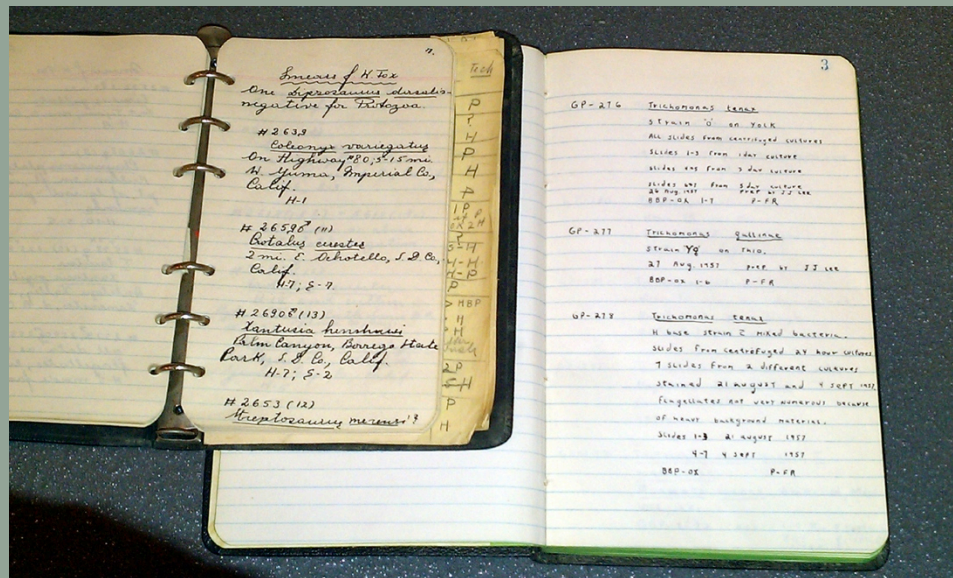 Smears f W Tox
One Dipsosaurus dorsalis-
negative for Protozoa.
# 2639
Coleonyx variegatus
On Highway #80; 3-15 mi.
W. Yuma, Imperial Co,
Calif.
H-1
# 2659 ♂ (11)
Crotalus cerestes
2 mi. E. Ochotello, S.D. Co,
Calif.
H-7; S-7.
# 2690 ♂ (13)
Xantusia henshawi
Palm Canyon, Borrego State
Park, S.D. Co., Calif.
H-7; S-2
# 2653 (12)
Streptosaurus mearnsi ♀
Tech
P
P
H
P
H
P
1 P
S-H
4-H
H-P
P
HBP
H
H
P
H
P
H
3
GP-276 Trichomonas tenax
Strain "O" on Yolk
All slides from centrifuged cultures
Slides 1-3 from 1 day culture
Slides 4+5 from 3 day culture
Slides 6+7 from 5 day culture
26 Aug. 1957 Prep by JJ Lee
BBP-OX 1-7 P-FR
GP-277 Trichomonas gallinae
Strain YG on Thio.
27 Aug. 1957 prep by JJ Lee
BBP-OX 1-6 P-FR
GP-278 Trichomonas tenax
H base strain c̄ mixed bacteria.
Slides from centrefuged 24 hour cultures
7 slides from 2 different cultures
stained 21 august and 4 sept 1957
Flagellates not very numerous because
of heavy background material.
Slides 1-3 21 august 1957
4-7 4 sept 1957
BBP-OX P-FR